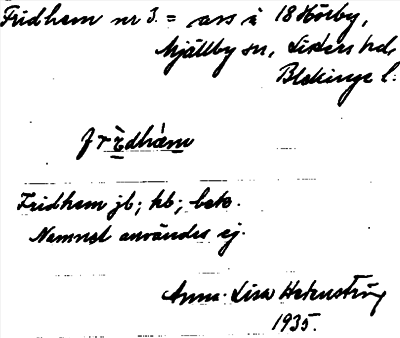 Fridhem nr 3. = avs å 18 Hörby,
Mjällby sn, Listers hd,
Blekinge l.
Fridhem jb; kb; bek.
Namnet användes ej.
Anna-Lisa
1935.